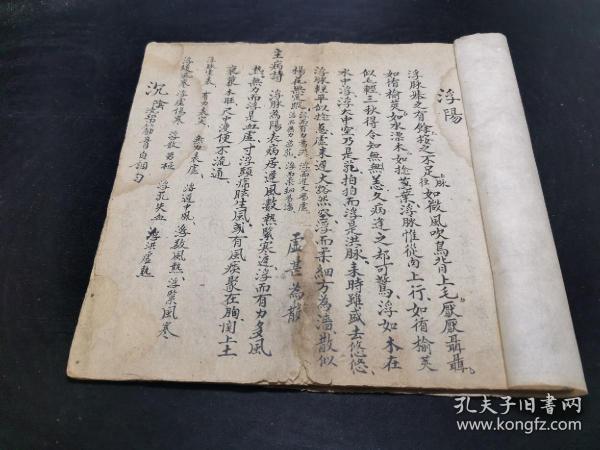 浮陽
浮脉舉之有餘按之不足脉往如微風吹鳥背上毛厭厭聶聶
如循榆莢如水漂木如捻葱葉浮脉惟從肉上行如循榆莢
似毛輕三秋得令知無恙久病逢之却可驚浮如木在
水中浮浮大中空乃是芤拍拍而浮是洪脉来時雖盛去悠悠
浮脉輕平似捻葱虚来遲大豁然空浮而柔細方為濡散似
楊花無定踪
虚甚為散
主病詩 浮脉為陽表病居遲風數熱緊寒逰浮而有力多風
熱無力而浮是血虚寸浮頭痛眩生風或有風痰聚在胸関上土
衰兼木旺尺中溲便不流通
浮脉主表 有力表实 無力表虚 浮遲中風 浮数風熱 浮緊風寒
浮緩風寒 浮虚傷暑 浮散勞極 浮芤失血 浮洪虚熱
沉陰
孔夫子旧书网
www.kongfz.com